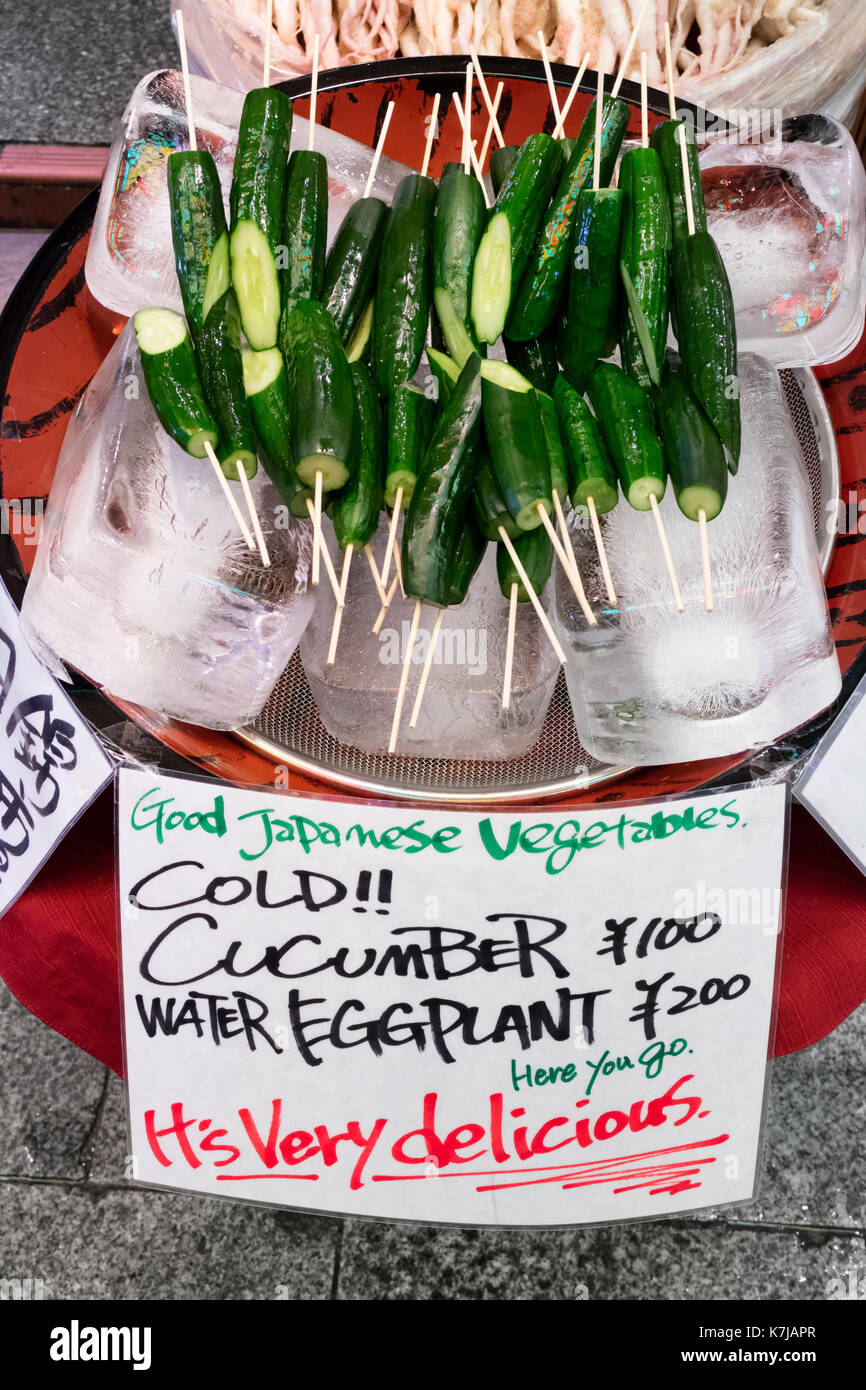 Good Japanese Vegetables.
COLD!!
CUCUMBER ¥100
WATER EGGPLANT ¥200
Here you go.
It's Very delicious.
alamy
Image ID: K7JAPR
www.alamy.com